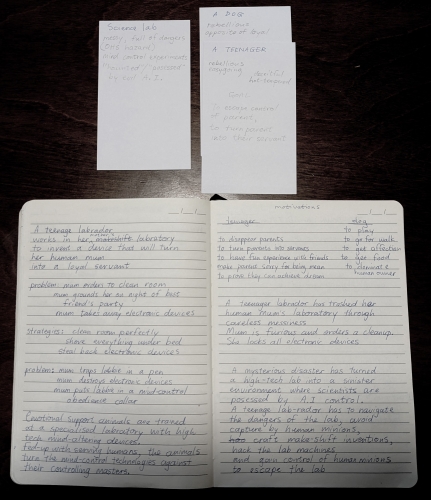 Science lab
messy, full of dangers
mind control experiments
by evil A.I.
A DOG
rebellious
opposite of loyal
A TEENAGER
rebellious
deceitful
hot-tempered
Goal:
To escape control
of parent,
to turn parent
into their servant
A teenage labrador
works in her mother's laboratory
to invent a device that will turn
her human mum
into a loyal servant
problem: mum orders to clean room
mum grounds her on night of best
friend's party
mum takes away electronic devices
strategies: clean room perfectly
shove everything under bed
steal back electronic devices
problem: mum traps labbie in a pen
mum destroys electronic devices
mum puts labbie in a mind-control
obedience collar
Emotional support animals are trained
at a specialised laboratory with high
tech mind-altering devices.
Fed-up with serving humans, the animals
turn the mind-control technologies against
their controlling masters.
motivations
teenager
dog
to disappear parents
to play
to turn parents into servants
to go for walk
to have fun experience with friends
to get affection
make parent sorry for being mean
to get food
to prove they can achieve dream
to dominate
human owner
A teenage labrador has trashed her
human mum's laboratory through
careless messiness
Mum is furious and orders a cleanup.
She locks all electronic devices
A mysterious disaster has turned
a high-tech lab into a sinister
environment where scientists are
posessed by A.I control.
A teenage lab-rador has to navigate
the dangers of the lab, avoid
capture by human minions,
craft make-shift inventions,
hack the lab machines
and gain control of human minions
to escape the lab